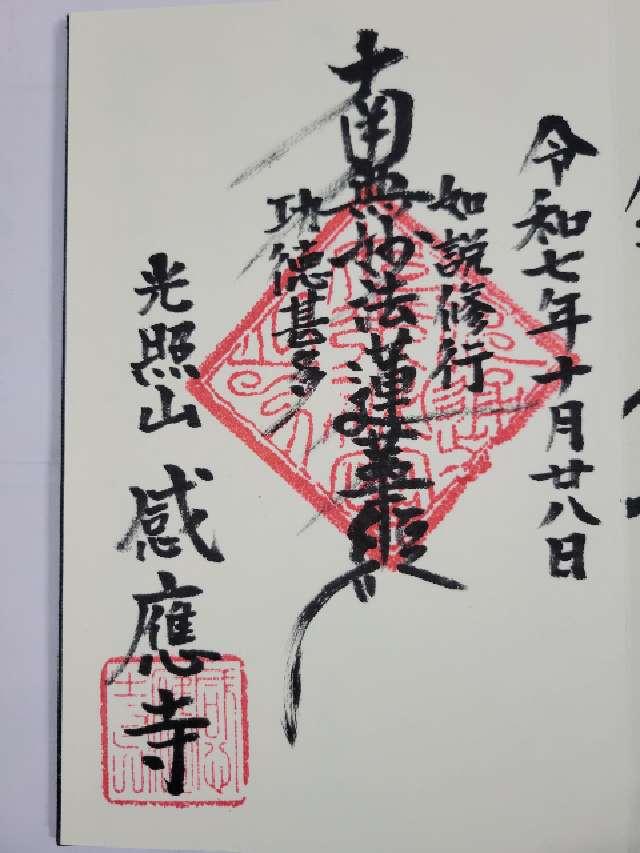 令和七年十月廿八日
如説修行
南無妙法蓮華経
功徳甚多
光照山
感應寺